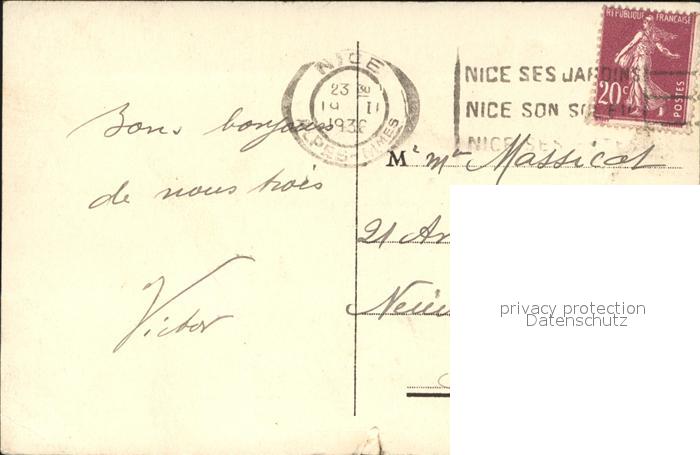 Bons bonjours
de nous trois
Victor
NICE
23 30
19 II
193
ALPES-MMES
NICE SES JARDINS
NICE SON SOLEIL
NICE SES
REPUBLIQUE FRANÇAISE
20c
POSTES
M. Mme Massicot
21 A
privacy protection
Datenschutz